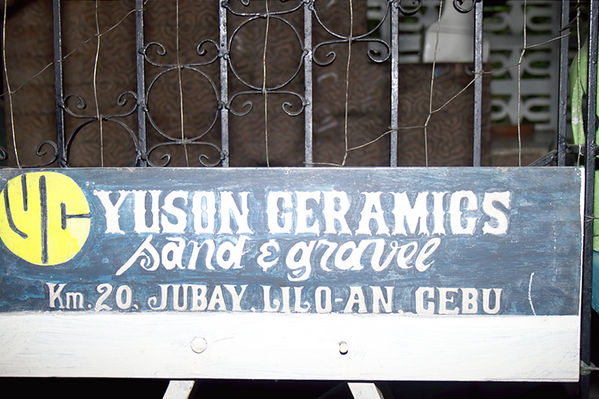 YC
YUSON CERAMICS
sand & gravel
Km. 20, JUBAY, LILO-AN, CEBU